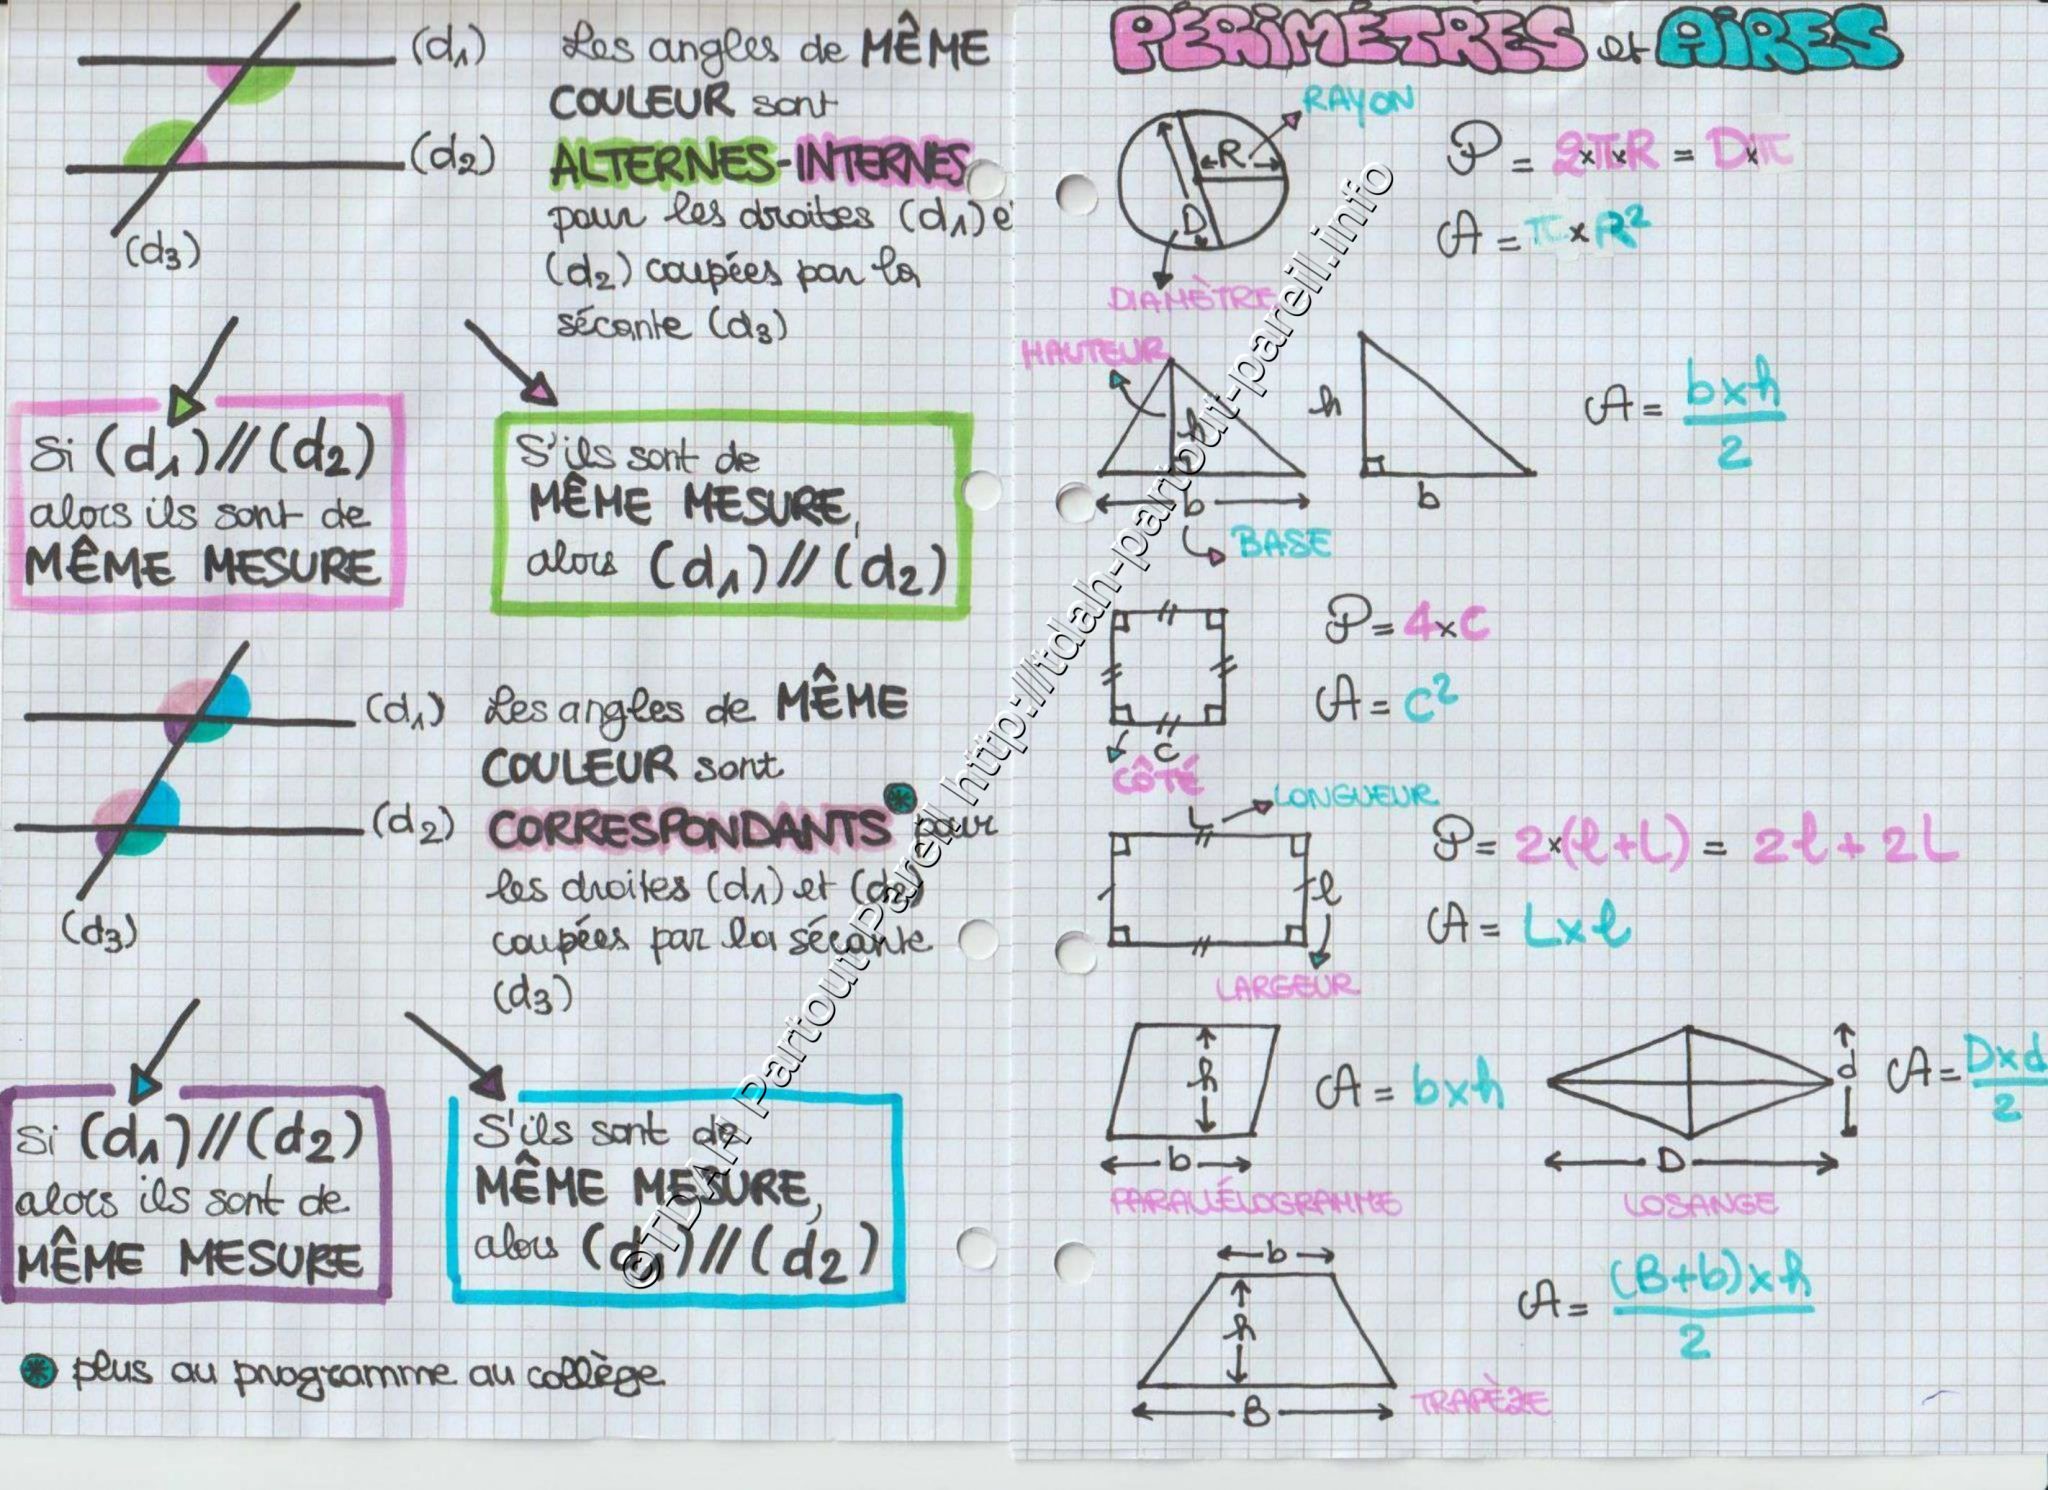 (d1)
(d2)
(d3)
Les angles de MÊME
COULEUR sont
ALTERNES-INTERNES
pour les droites (d1) e
(d2) coupées par la
sécante (d3)
Si (d1)//(d2)
alors ils sont de
MÊME MESURE
S'ils sont de
MÊME MESURE,
alors (d1)//(d2)
(d1)
(d2)
(d3)
Les angles de MÊME
COULEUR sont
CORRESPONDANTS* pour
les droites (d1) et (d2)
coupées par la sécante
(d3)
Si (d1)//(d2)
alors ils sont de
MÊME MESURE
S'ils sont de
MÊME MESURE,
alors (d1)//(d2)
* plus au programme au collège
PÉRIMÉTRES et AIRES
RAYON
R
D
DIAMÈTRE
P = 2×π×R = D×π
A = π×R²
HAUTEUR
h
b
BASE
h
b
A = b×h/2
C
CÔTÉ
P = 4×C
A = C²
L
LONGUEUR
l
LARGEUR
P = 2×(l+L) = 2l + 2L
A = L×l
h
b
PARALLÉLOGRAMME
A = b×h
d
D
LOSANGE
A = D×d/2
b
h
B
TRAPÈZE
A = (B+b)×h/2
©TDAH Partout Pareil http://tdah-partout-pareil.info